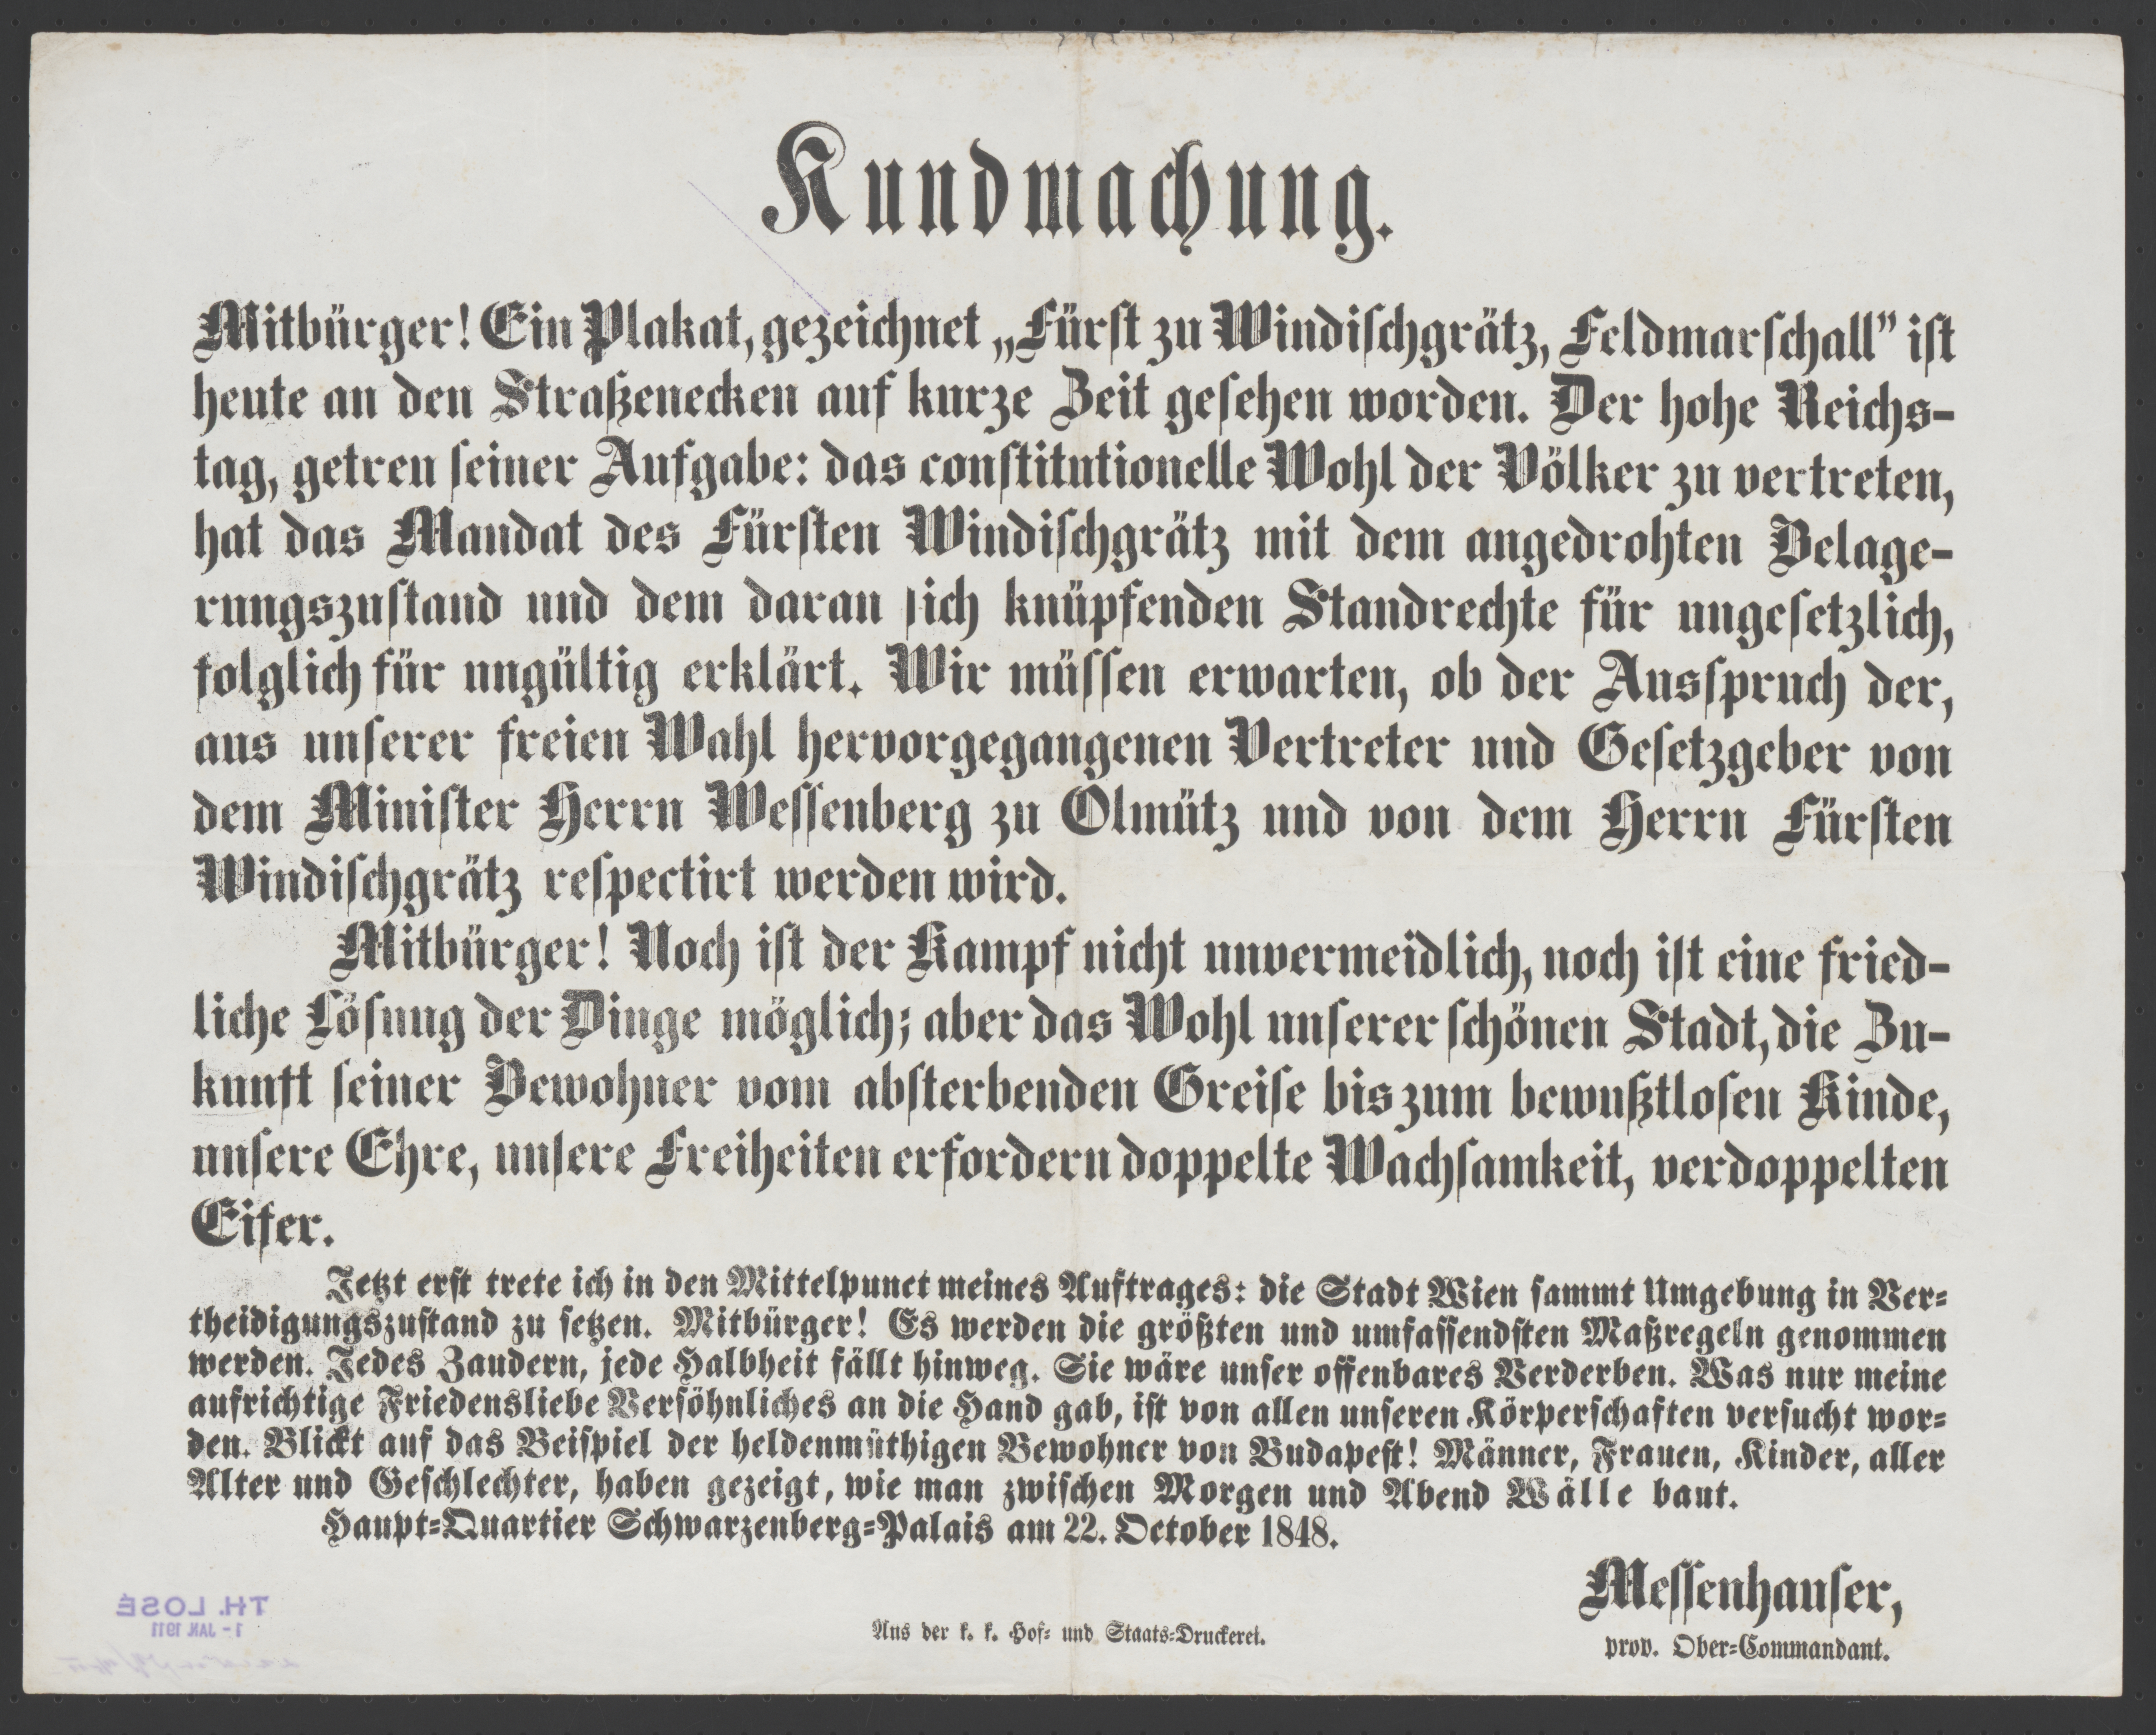 Kundmachung.
Mitbürger! Ein Plakat, gezeichnet „Fürst zu Windischgrätz, Feldmarschall” ist
heute an den Straßenecken auf kurze Zeit gesehen worden. Der hohe Reichs-
tag, getreu seiner Aufgabe: das constitutionelle Wohl der Völker zu vertreten,
hat das Mandat des Fürsten Windischgrätz mit dem angedrohten Belage-
rungszustand und dem daran sich knüpfenden Standrechte für ungesetzlich,
folglich für ungültig erklärt. Wir müssen erwarten, ob der Ausspruch der,
aus unserer freien Wahl hervorgegangenen Vertreter und Gesetzgeber von
dem Minister Herrn Wessenberg zu Olmütz und von dem Herrn Fürsten
Windischgrätz respectirt werden wird.
Mitbürger! Noch ist der Kampf nicht unvermeidlich, noch ist eine fried-
liche Lösung der Dinge möglich; aber das Wohl unserer schönen Stadt, die Zu-
kunft seiner Bewohner vom absterbenden Greise bis zum bewußtlosen Kinde,
unsere Ehre, unsere Freiheiten erfordern doppelte Wachsamkeit, verdoppelten
Eifer.
Jetzt erst trete ich in den Mittelpunct meines Auftrages: die Stadt Wien sammt Umgebung in Ver-
theidigungszustand zu setzen. Mitbürger! Es werden die größten und umfassendsten Maßregeln genommen
werden. Jedes Zaudern, jede Halbheit fällt hinweg. Sie wäre unser offenbares Verderben. Was nur meine
aufrichtige Friedensliebe Versöhnliches an die Hand gab, ist von allen unseren Körperschaften versucht wor-
den. Blickt auf das Beispiel der heldenmüthigen Bewohner von Budapest! Männer, Frauen, Kinder, aller
Alter und Geschlechter, haben gezeigt, wie man zwischen Morgen und Abend Wälle baut.
Haupt-Quartier Schwarzenberg-Palais am 22. October 1848.
Messenhauser,
prov. Ober-Commandant.
Aus der k. k. Hof- und Staats-Druckerei.
TH. LOSÉ
1 - JAN. 1911